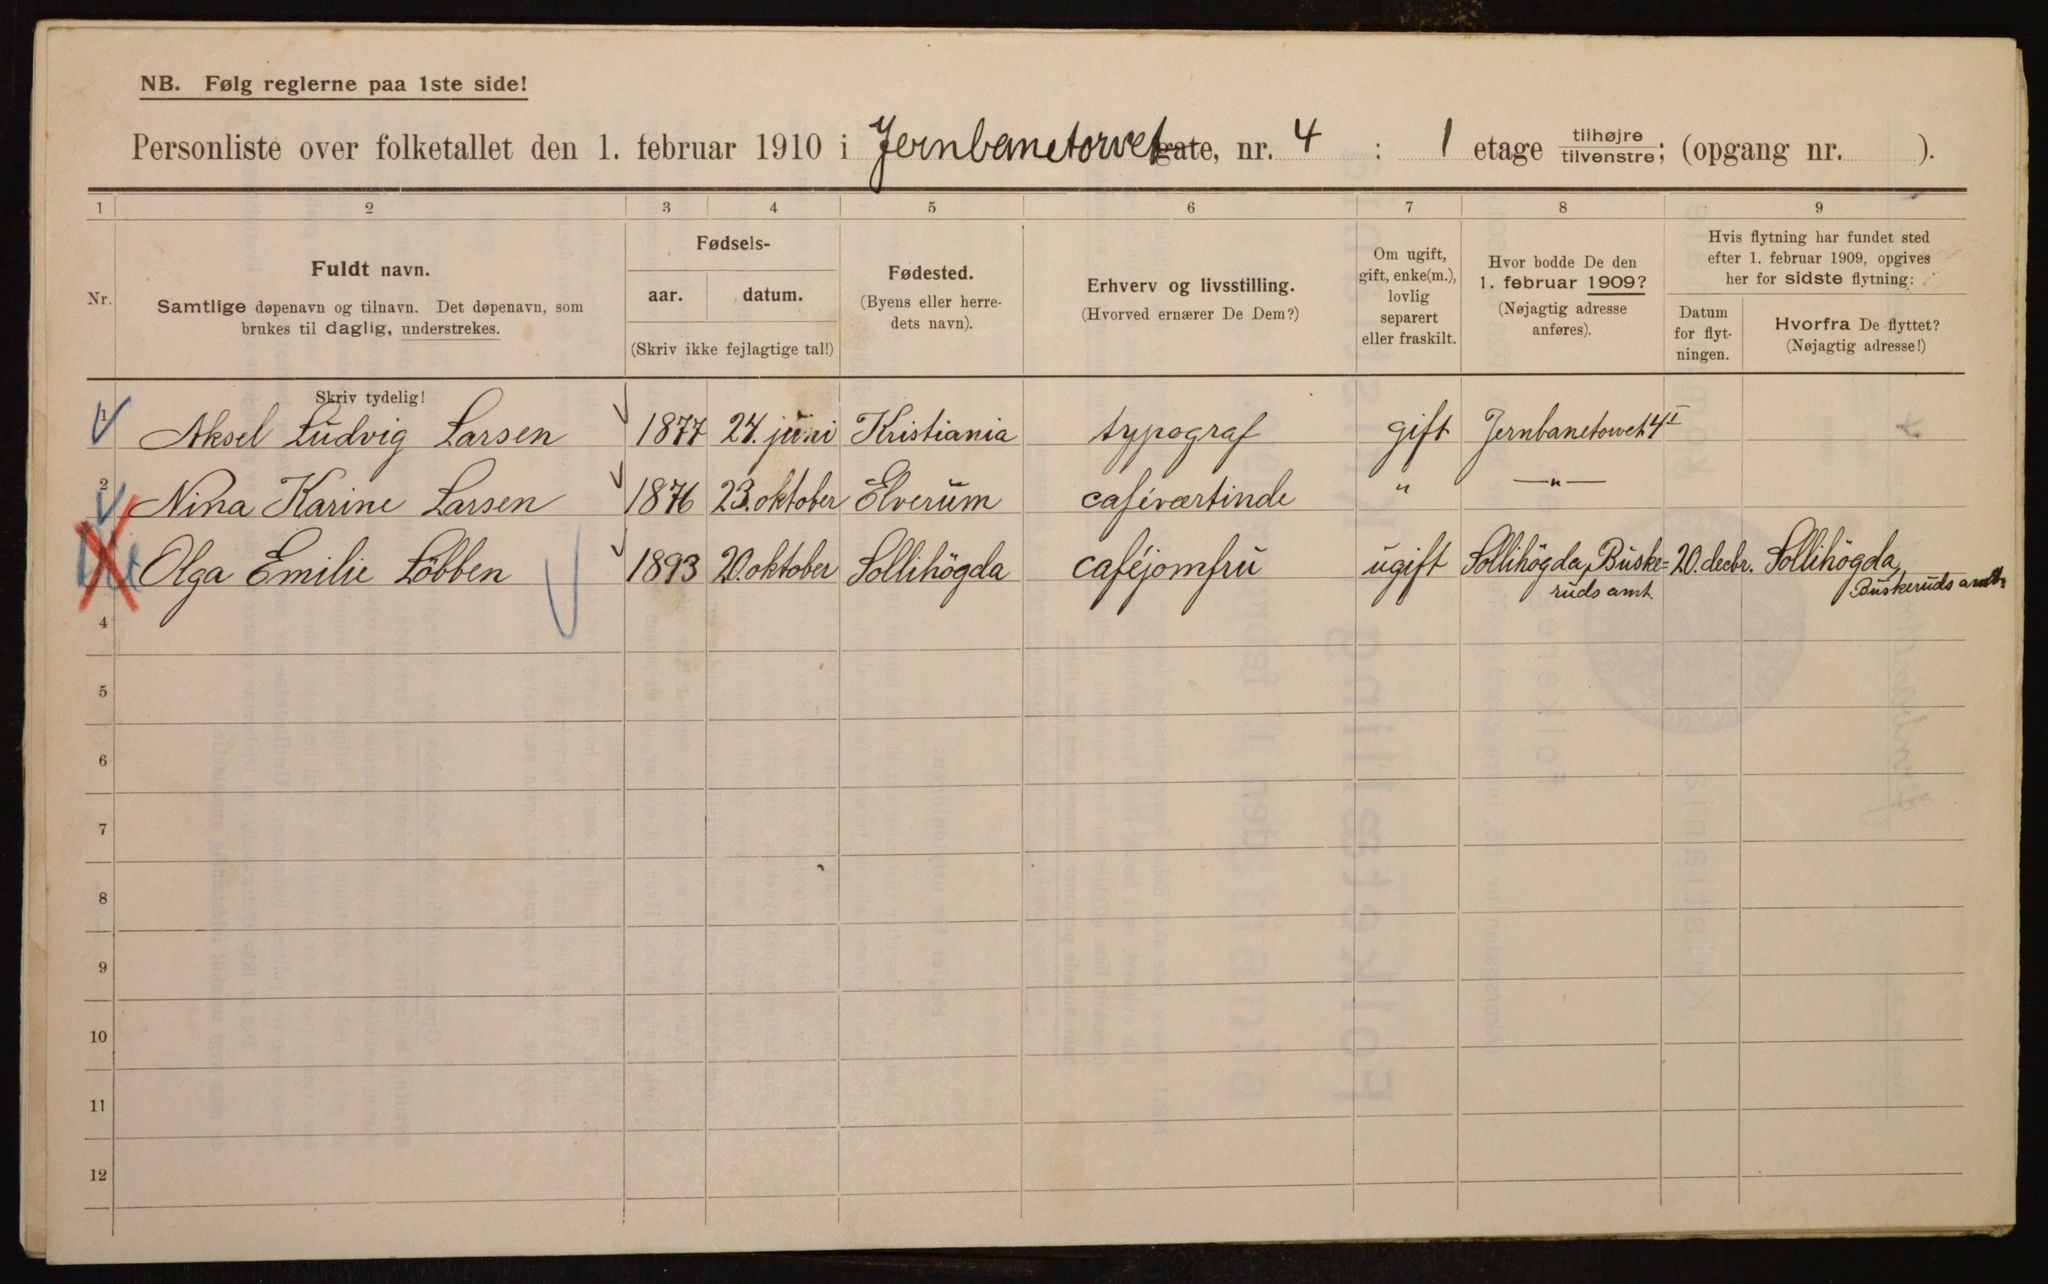 NB. Følg reglerne paa 1ste side!
Personliste over folketallet den 1. februar 1910 i Jernbanetorvet gate, nr. 4 : 1 etage tilhøjre/tilvenstre; (opgang nr. ).
1 2 3 4 5 6 7 8 9
Nr.
Fuldt navn.
Samtlige døpenavn og tilnavn. Det døpenavn, som
brukes til daglig, understrekes.
Skriv tydelig!
Fødsels-
aar. datum.
(Skriv ikke fejlagtige tal!)
Fødested.
(Byens eller herre-
dets navn).
Erhverv og livsstilling.
(Hvorved ernærer De Dem?)
Om ugift,
gift, enke(m.),
lovlig
separert
eller fraskilt.
Hvor bodde De den
1. februar 1909?
(Nøjagtig adresse
anføres).
Hvis flytning har fundet sted
efter 1. februar 1909, opgives
her for sidste flytning:
Datum
for flyt-
ningen.
Hvorfra De flyttet?
(Nøjagtig adresse!)
1 Aksel Ludvig Larsen 1877 24. juni Kristiania typograf gift Jernbanetorvet 4 I
2 Nina Karine Larsen 1876 23. oktober Elverum caféværtinde " —"—
Olga Emilie Löbben 1893 20. oktober Sollihögda caféjomfru ugift Sollihögda, Buske= 20. decbr. Sollihögda,
ruds amt. Buskeruds amt.
4
5
6
7
8
9
10
11
12